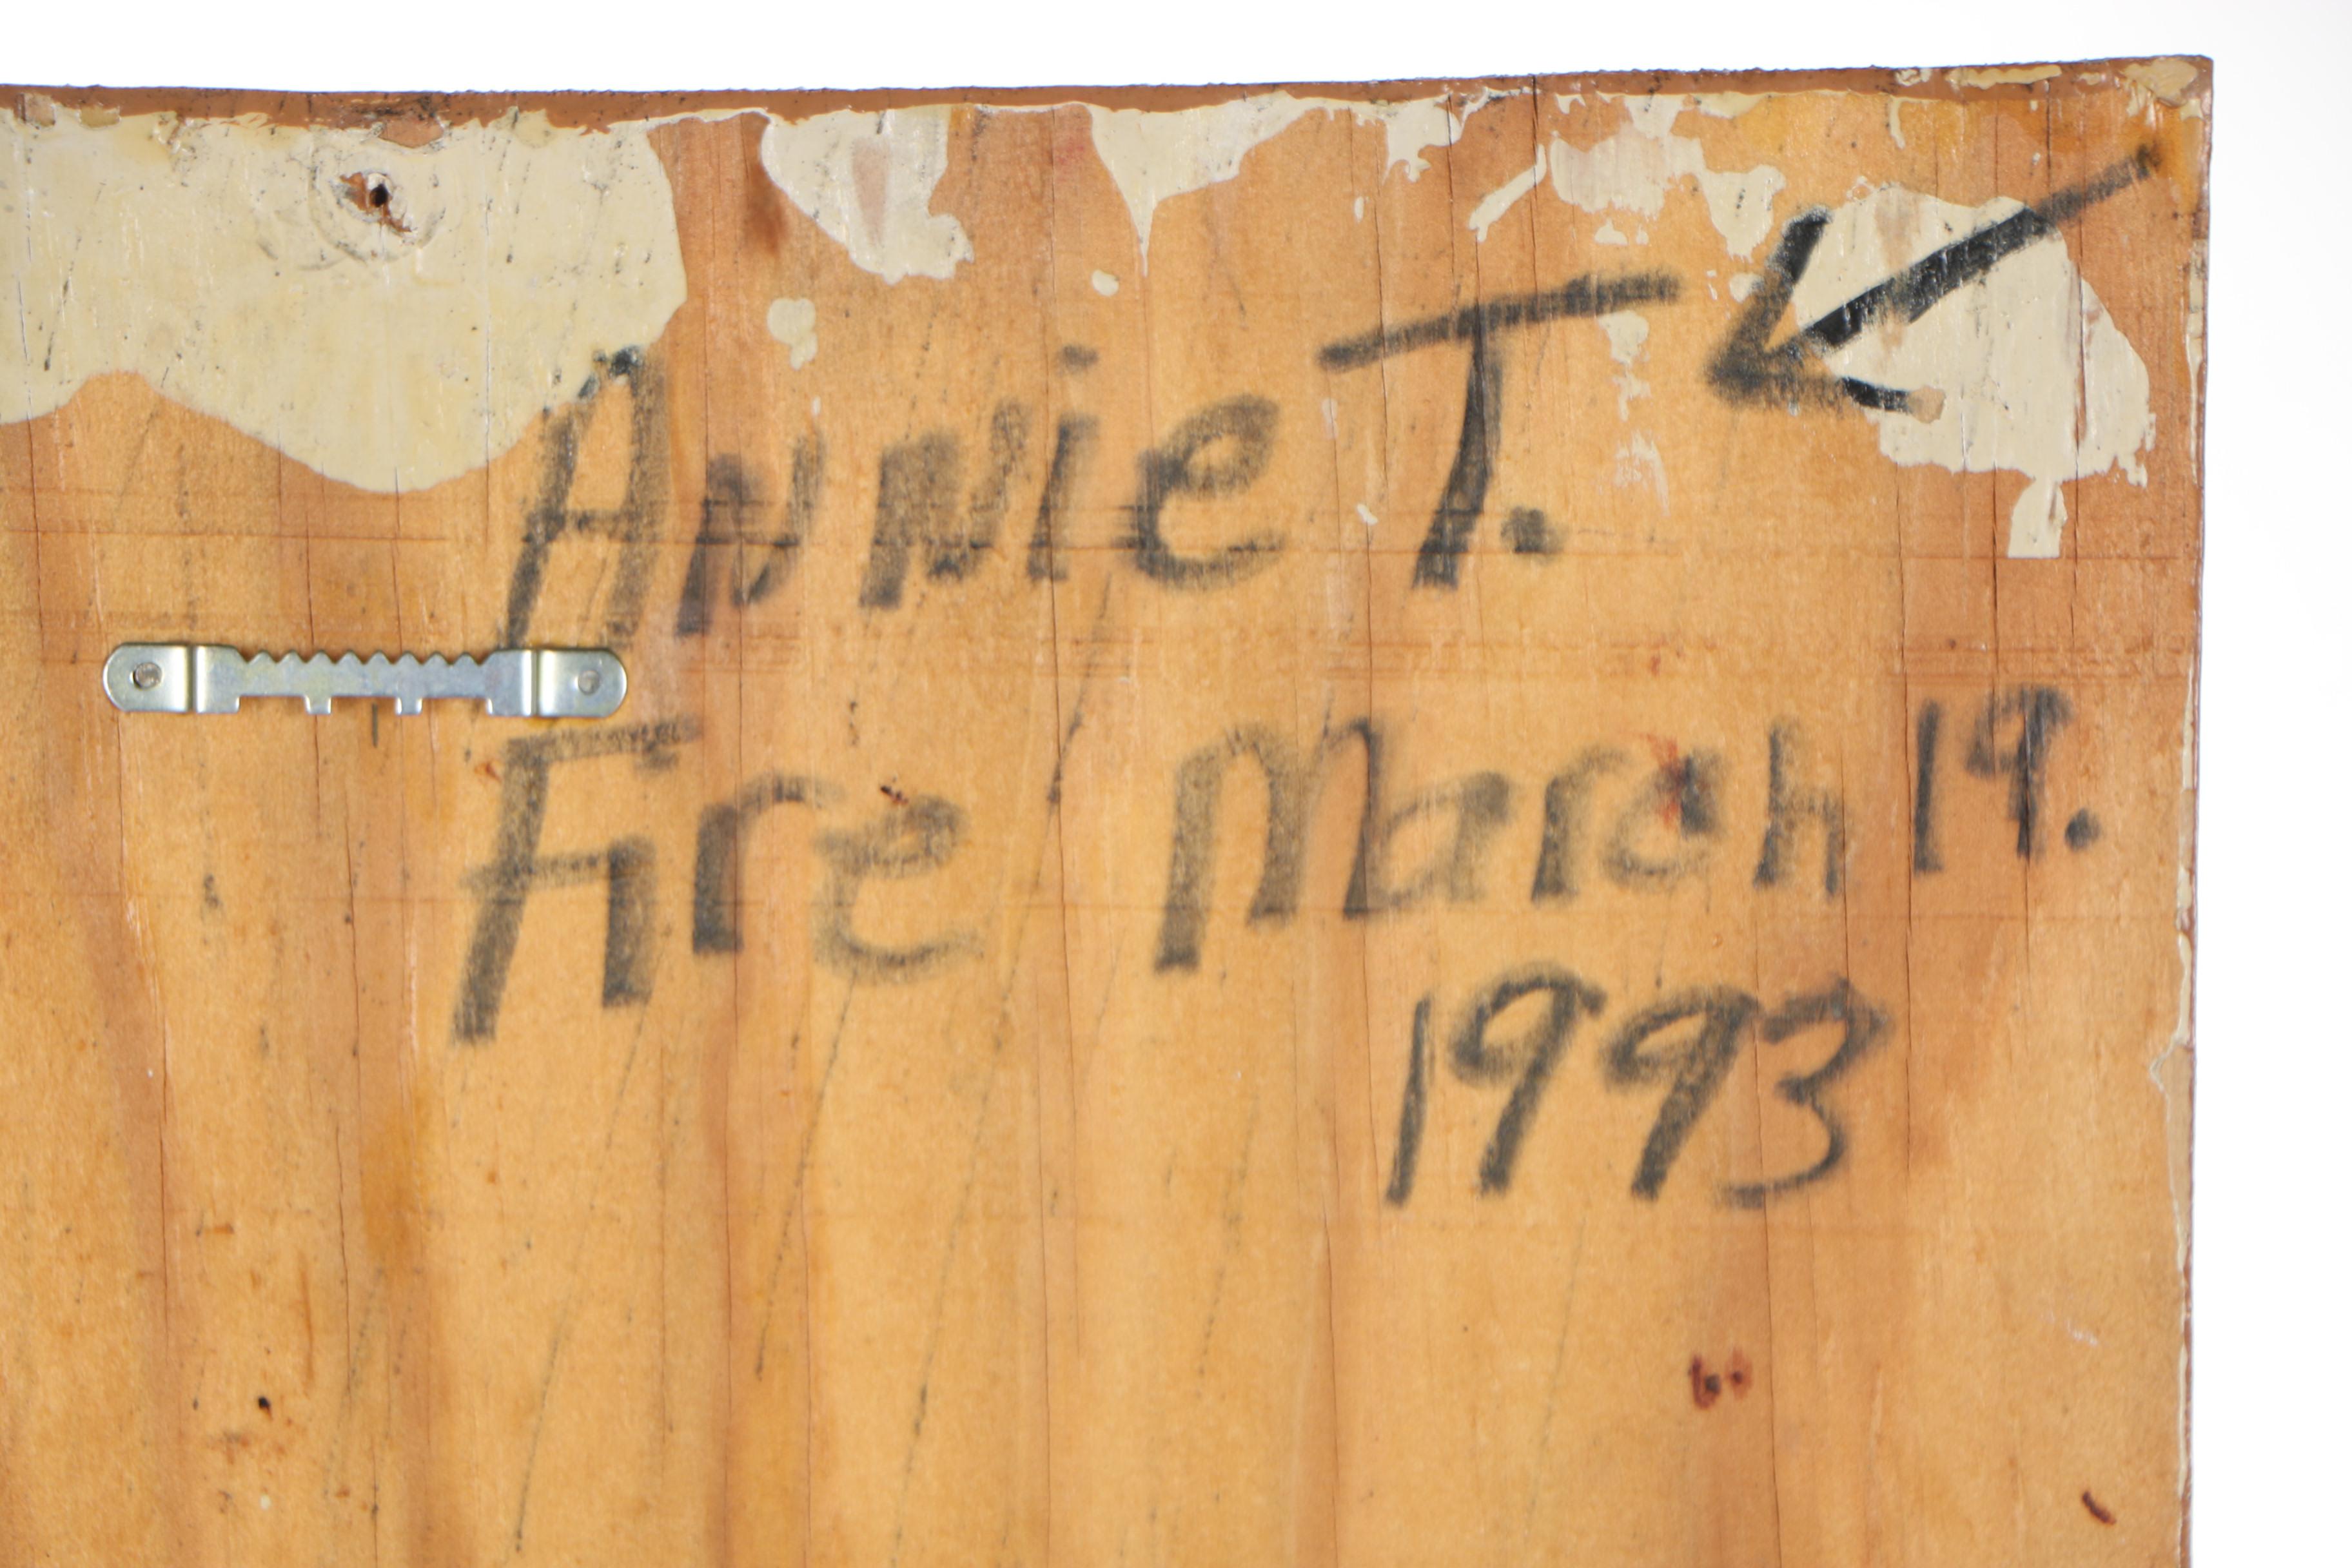 Annie T.
Fire March 19.
1993